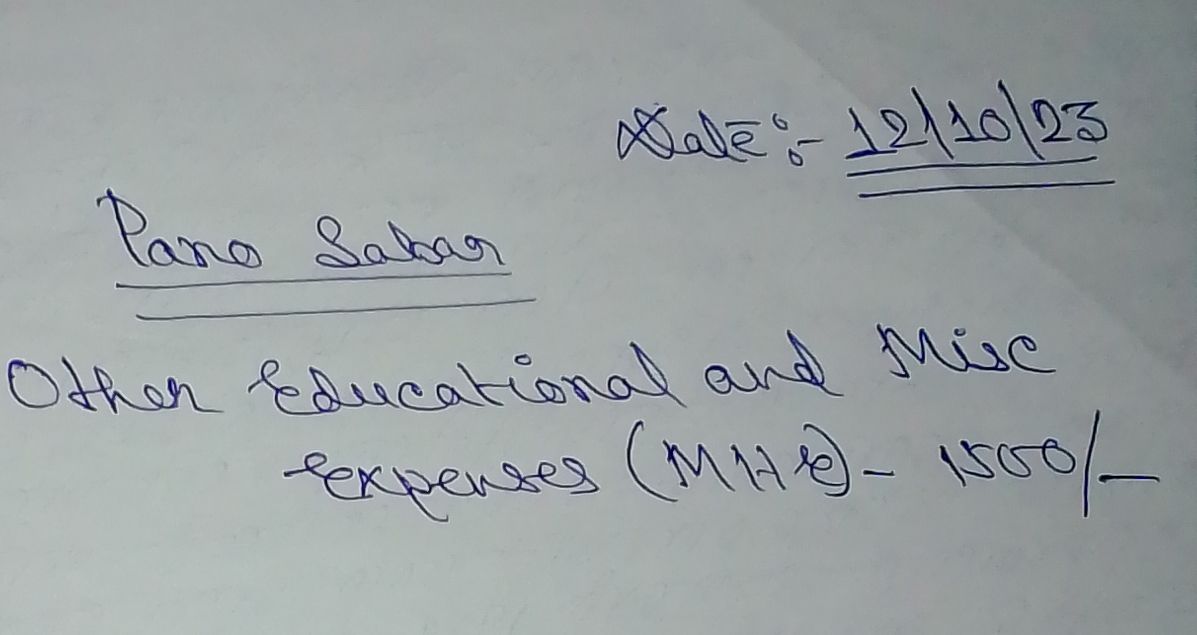 Date:- 12/10/23
Pano Sabar
Other Educational and Misc
Expenses (MHE) - 1500/-